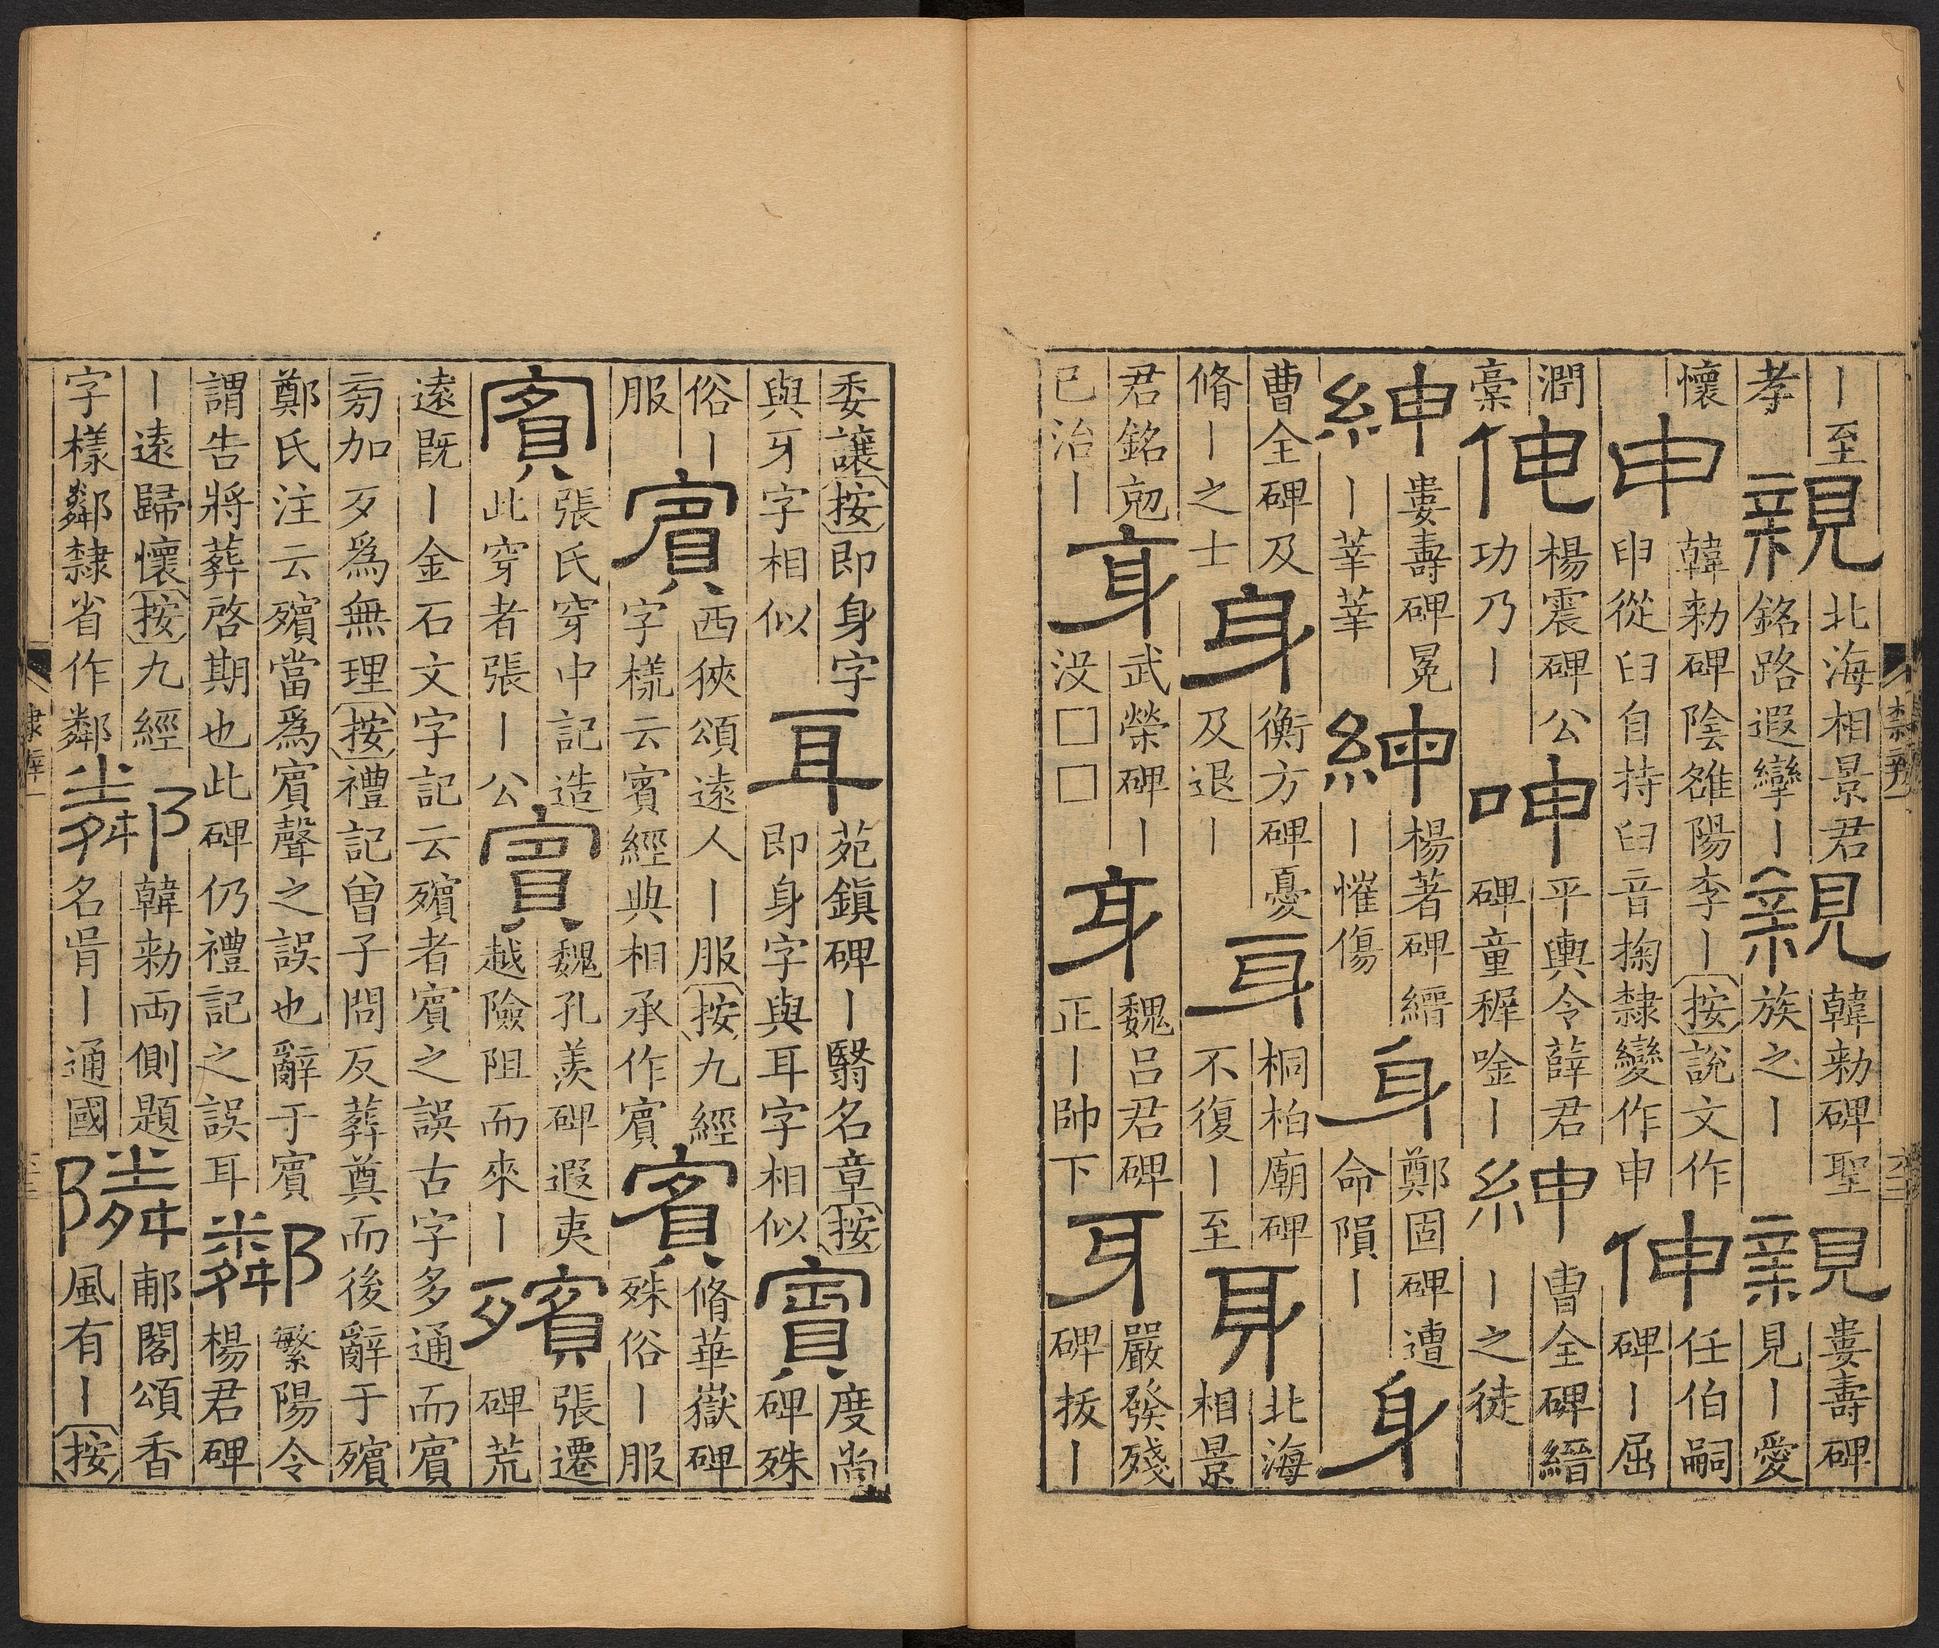 丨至
孝
親
北海相景君
銘路遐攣丨
親
韓勑碑聖
族之丨
親
婁壽碑
見丨愛
懷
申
韓勑碑陰雒陽李丨按說文作
申從臼自持臼音掬隸變作申
伸
任伯嗣
碑丨屈
澗
稾
伸
楊震碑公
功乃丨
呻
平輿令薛君
碑童穉唫丨
紳
曹全碑縉
丨之徒
紳
婁壽碑冕
丨莘莘
紳
楊著碑縉
丨慛傷
身
鄭固碑遭
命隕丨
身
曹全碑及
脩丨之士
身
衡方碑憂
及退丨
耳
桐柏廟碑
不復丨至
身
北海
相景
君銘剋
已治丨
身
武榮碑丨
没□□
身
魏呂君碑
正丨帥下
牙
嚴發殘
碑拔丨
隸辨一
委讓按即身字
與牙字相似
耳
苑鎮碑丨翳名章按
即身字與耳字相似
賓
度尚
碑殊
俗丨
服
賔
西狹頌遠人丨服按九經
字樣云賓經典相承作賔
賔
脩華嶽碑
殊俗丨服
賔
張氏穿中記造
此穿者張丨公
賓
魏孔羨碑遐夷
越險阻而來丨
殯
張遷
碑荒
遠既丨金石文字記云殯者賔之誤古字多通而賔
旁加歹爲無理按禮記曾子問反葬奠而後辭于殯
鄭氏注云殯當爲賔聲之誤也辭于賔
謂告將葬啓期也此碑仍禮記之誤耳
鄰
繁陽令
楊君碑
丨遠歸懷按九經
字樣鄰隸省作鄰
鄰
韓勑兩側題
名胥丨通國
隣
郙閣頌香
風有丨按